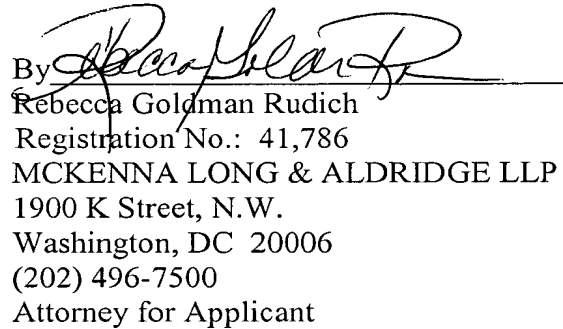 By Rebecca Goldman Rudich
Rebecca Goldman Rudich
Registration No.: 41,786
MCKENNA LONG & ALDRIDGE LLP
1900 K Street, N.W.
Washington, DC 20006
(202) 496-7500
Attorney for Applicant